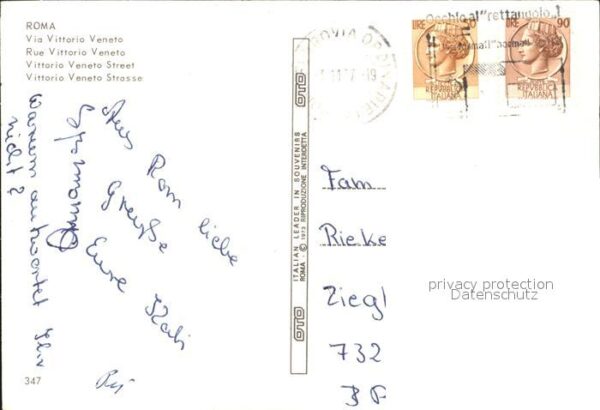 ROMA
Via Vittorio Veneto
Rue Vittorio Veneto
Vittorio Veneto Street
Vittorio Veneto Strasse
Aus Rom liebe
Grüße
Eure
Warum antwortet Ihr
nicht?
347
OTO
ITALIAN LEADER IN SOUVENIRS
ROMA - © 1973 RIPRODUZIONE INTERDETTA
OTO
Occhio al "rettangolo"
"normali" "normali"
LIRE
REPUBBLICA
ITALIANA
LIRE 90
REPUBBLICA
ITALIANA
Fam
Rieke
Ziegl
732
privacy protection
Datenschutz